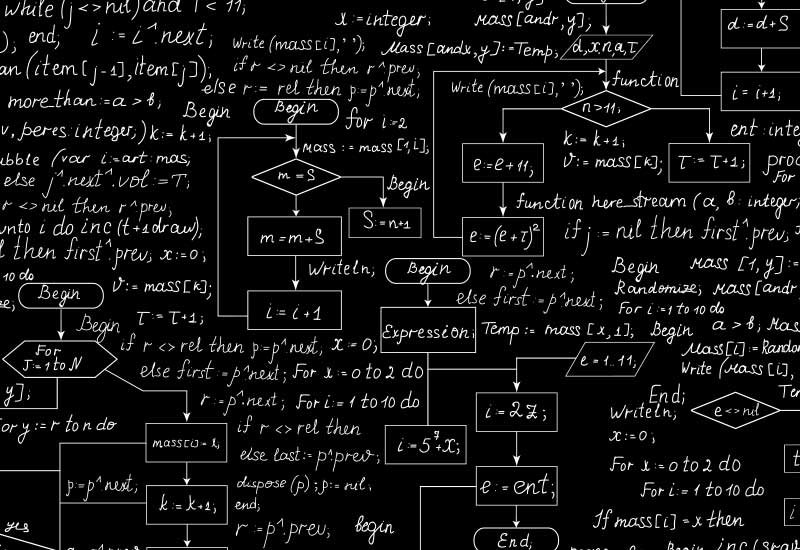 while (j <> nil) and i < 11;
x:=integer;
mass[andr,y];
d:=d+S
); end;
i := i^.next;
write (mass[i],' ');
Mass[andx,y]:=Temp;
d,x,n,a,τ
an (item[j-1],item[j]);
if r <> nel then r^prev,
else r:= rel then p:=p^.next;
function
i = i+1;
more_than:=a > b,
Begin
Begin
for i:=2
Write (mass[i],' ');
n>11;
v, beres:integer;)
k:= k+1;
mass := mass[1,i];
k:= k+1;
v:= mass[k];
τ:= τ+1;
ent :intege
ubble (var i:=art:mas;
m = S
e:=e+11;
proc
For
else j^.next^.vol:=T;
Begin
r <> nil then r^prev,
S:=n+1
function here_stream (a, b: integer;
unto i do inc (t+1draw);
m = m+S
e:=(e+τ)²
if j := nil then first^.prev,
l then first^.prev; x:=0;
10 do
Writeln;
Begin
r:=p^.next;
Begin
mass [1,y]:=
Begin
v:= mass[k];
else first:=p^.next;
Randomize;
mass[andr
τ:= τ+1;
i:= i+1
For i:=1 to 10 do
Begin
Expression;
Temp:= mass [x,1];
Begin
a > b,
Mas
For
J:=1 to N
if r <> rel then p:=p^next,
x:=0;
e = 1..11;
Mass[i]:=Random
Write (Mass[i],
else first:=p^.next;
For x:=0 to 2 do
y];
r:=p^.next;
For i:= 1 to 10 do
i:=2z;
End;
Writeln;
e<>nil
Ter
or y:=r to n do
mass[i]=1,
if r <> rel then
i:=5⁷+x;
x:=0;
else last:=p^.prev;
For x:=0 to 2 do
p:=p^next;
k:= k+1;
dispose (p);p:=nil,
end;
e:= ent;
For i:=1 to 10 do
yes
r :=p^.prev;
begin
End;
If mass[i] = x then
Begin